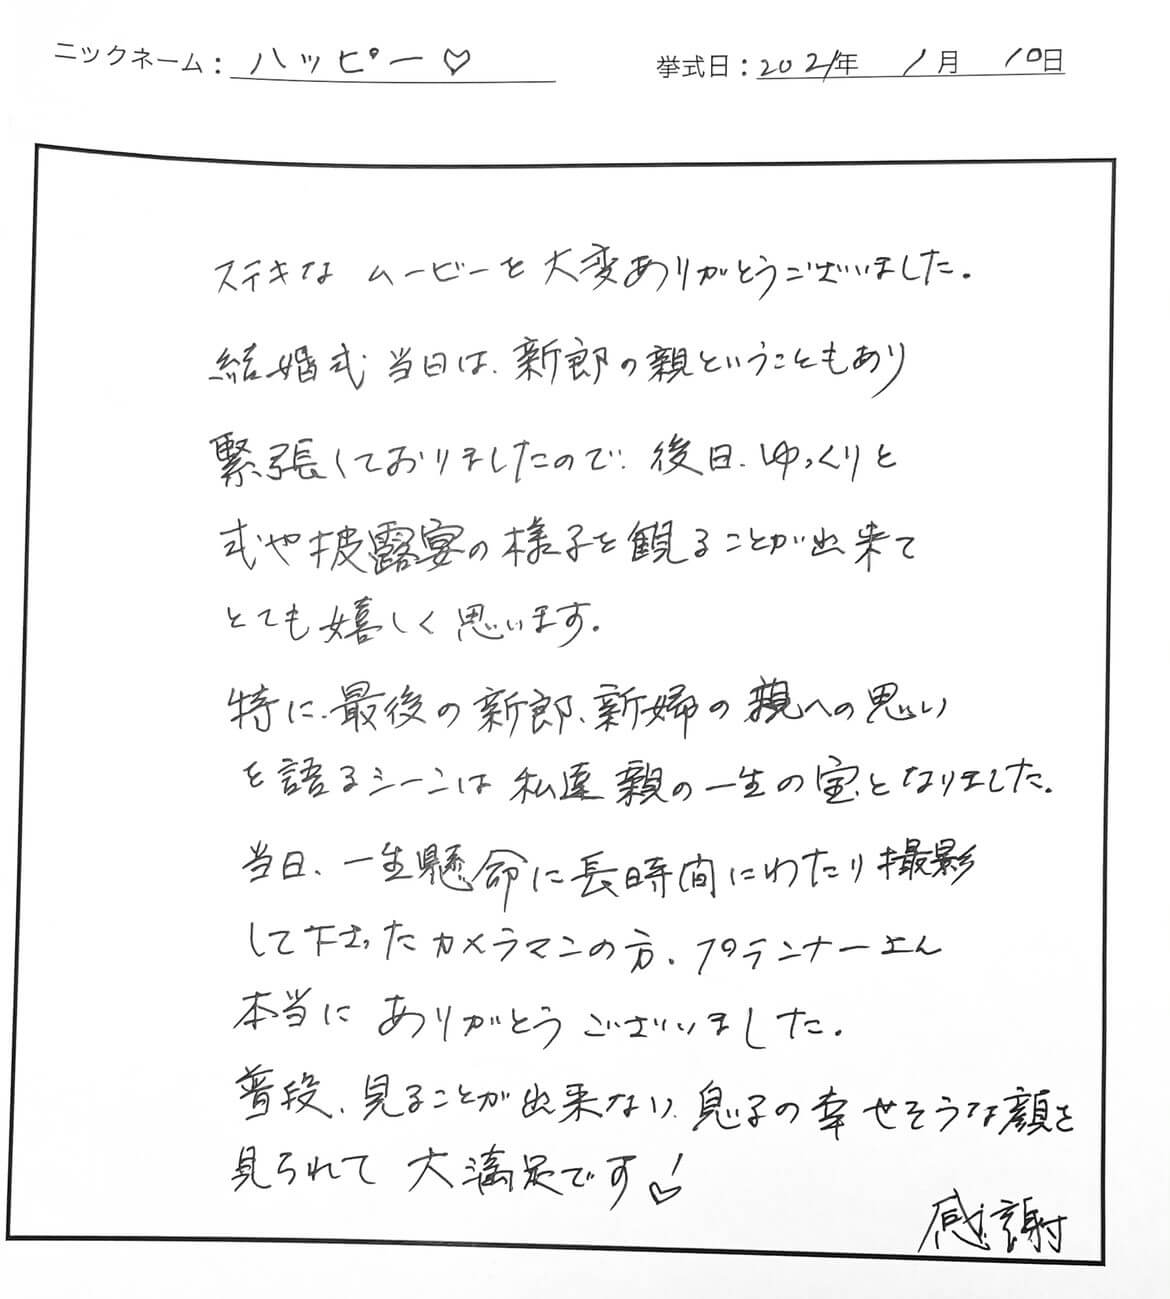 ニックネーム：ハッピー♡　挙式日：2021年 1月 10日
ステキな ムービーを大変ありがとうございました。
結婚式当日は、新郎の親ということもあり
緊張しておりましたので、後日、ゆっくりと
式や披露宴の様子を観ることが出来て
とても嬉しく思います。
特に、最後の新郎、新婦の親への思い
を語るシーンは私達親の一生の宝となりました。
当日、一生懸命に長時間にわたり撮影
して下さったカメラマンの方、プランナーさん
本当に ありがとう ございました。
普段、見ることが出来ない、息子の幸せそうな顔を
見られて 大満足です♡！
感謝